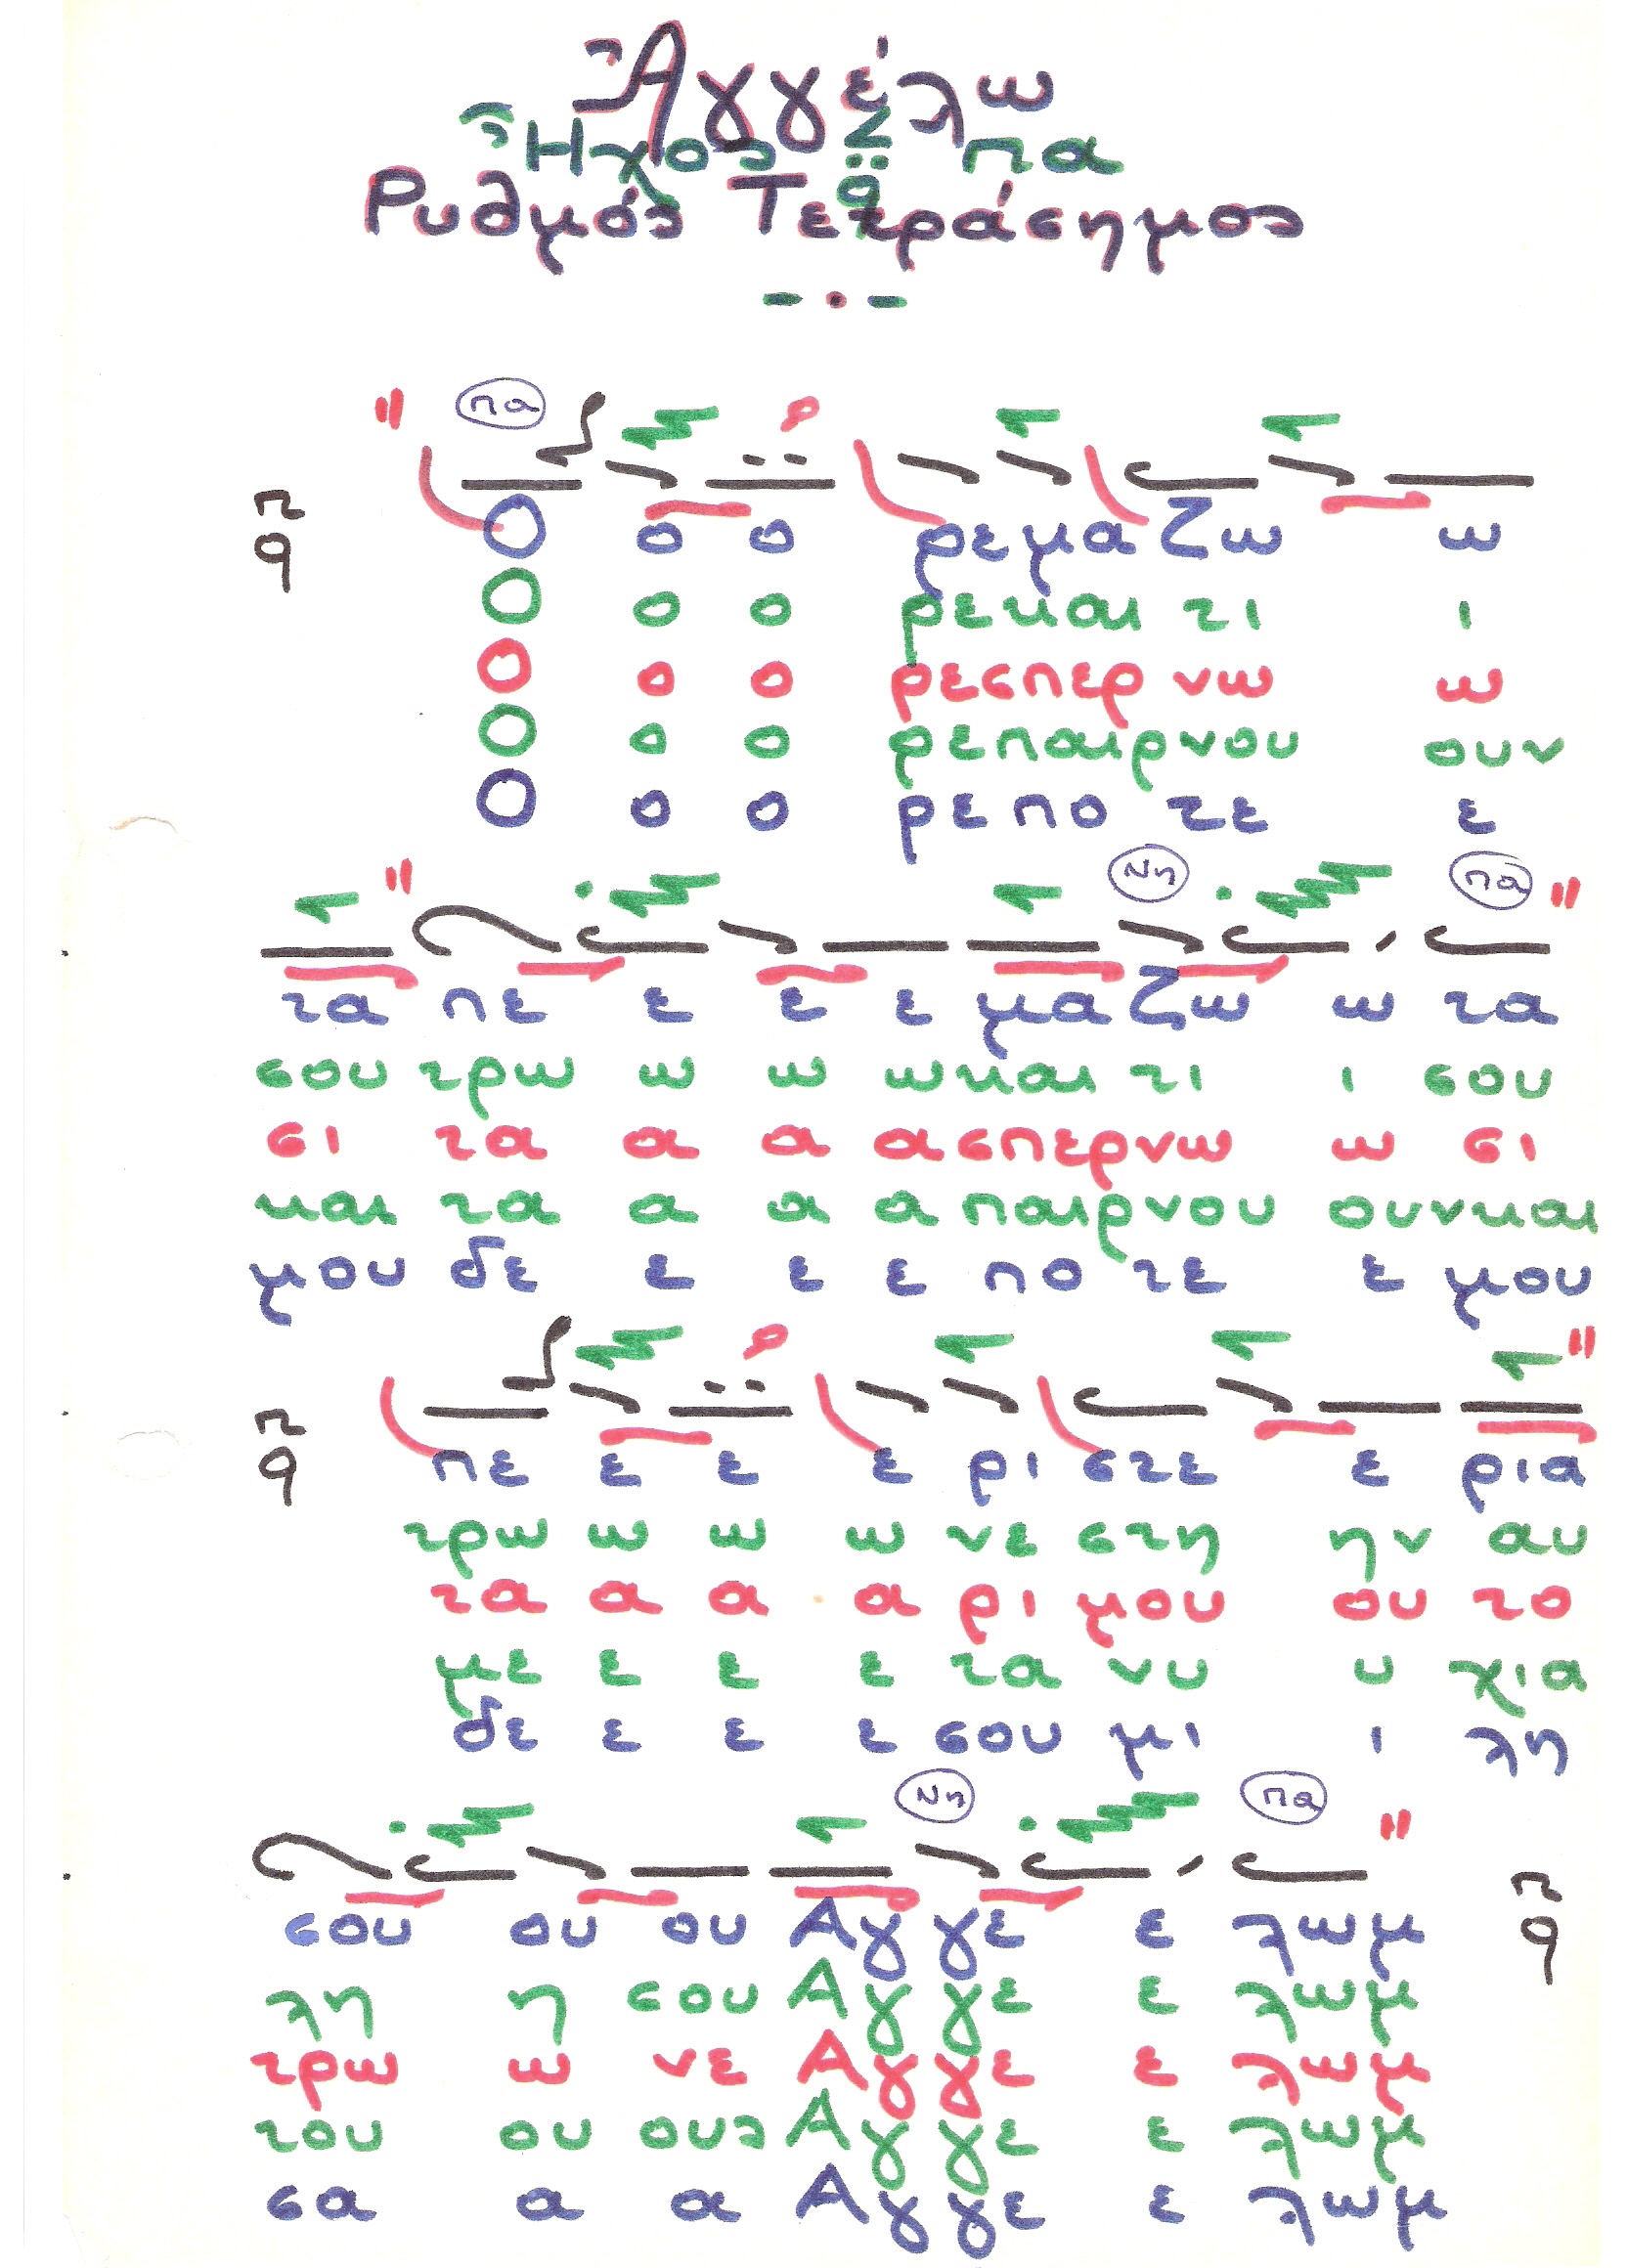 Ἀγγέλω
Ἦχος πα
Ρυθμός Τετράσημος
πα
Ο ο ο ρεμαζω ω
Ο ο ο ρεκαι τι ι
Ο ο ο ρεσπερ νω ω
Ο ο ο ρεπαιρνου ουν
Ο ο ο ρεπο τε ε
Νη πα
τα πε ε ε ε μαζω ω τα
σου τρω ω ω ωκαι τι ι σου
σι τα α α ασπερνω ω σι
και τα α α α παιρνου ουνκαι
μου δε ε ε ε πο τε ε μου
πε ε ε ε ρι στε ε ρια
τρω ω ω ω νε στη ην αυ
τα α α α ρι μου ου το
με ε ε ε τα νυ υ χια
δε ε ε ε σου μι ι λη
Νη πα
σου ου ου Αγ γε ε λωμ
λη η σου Αγ γε ε λωμ
τρω ω νε Αγ γε ε λωμ
του ου ους Αγ γε ε λωμ
σα α α Αγ γε ε λωμ